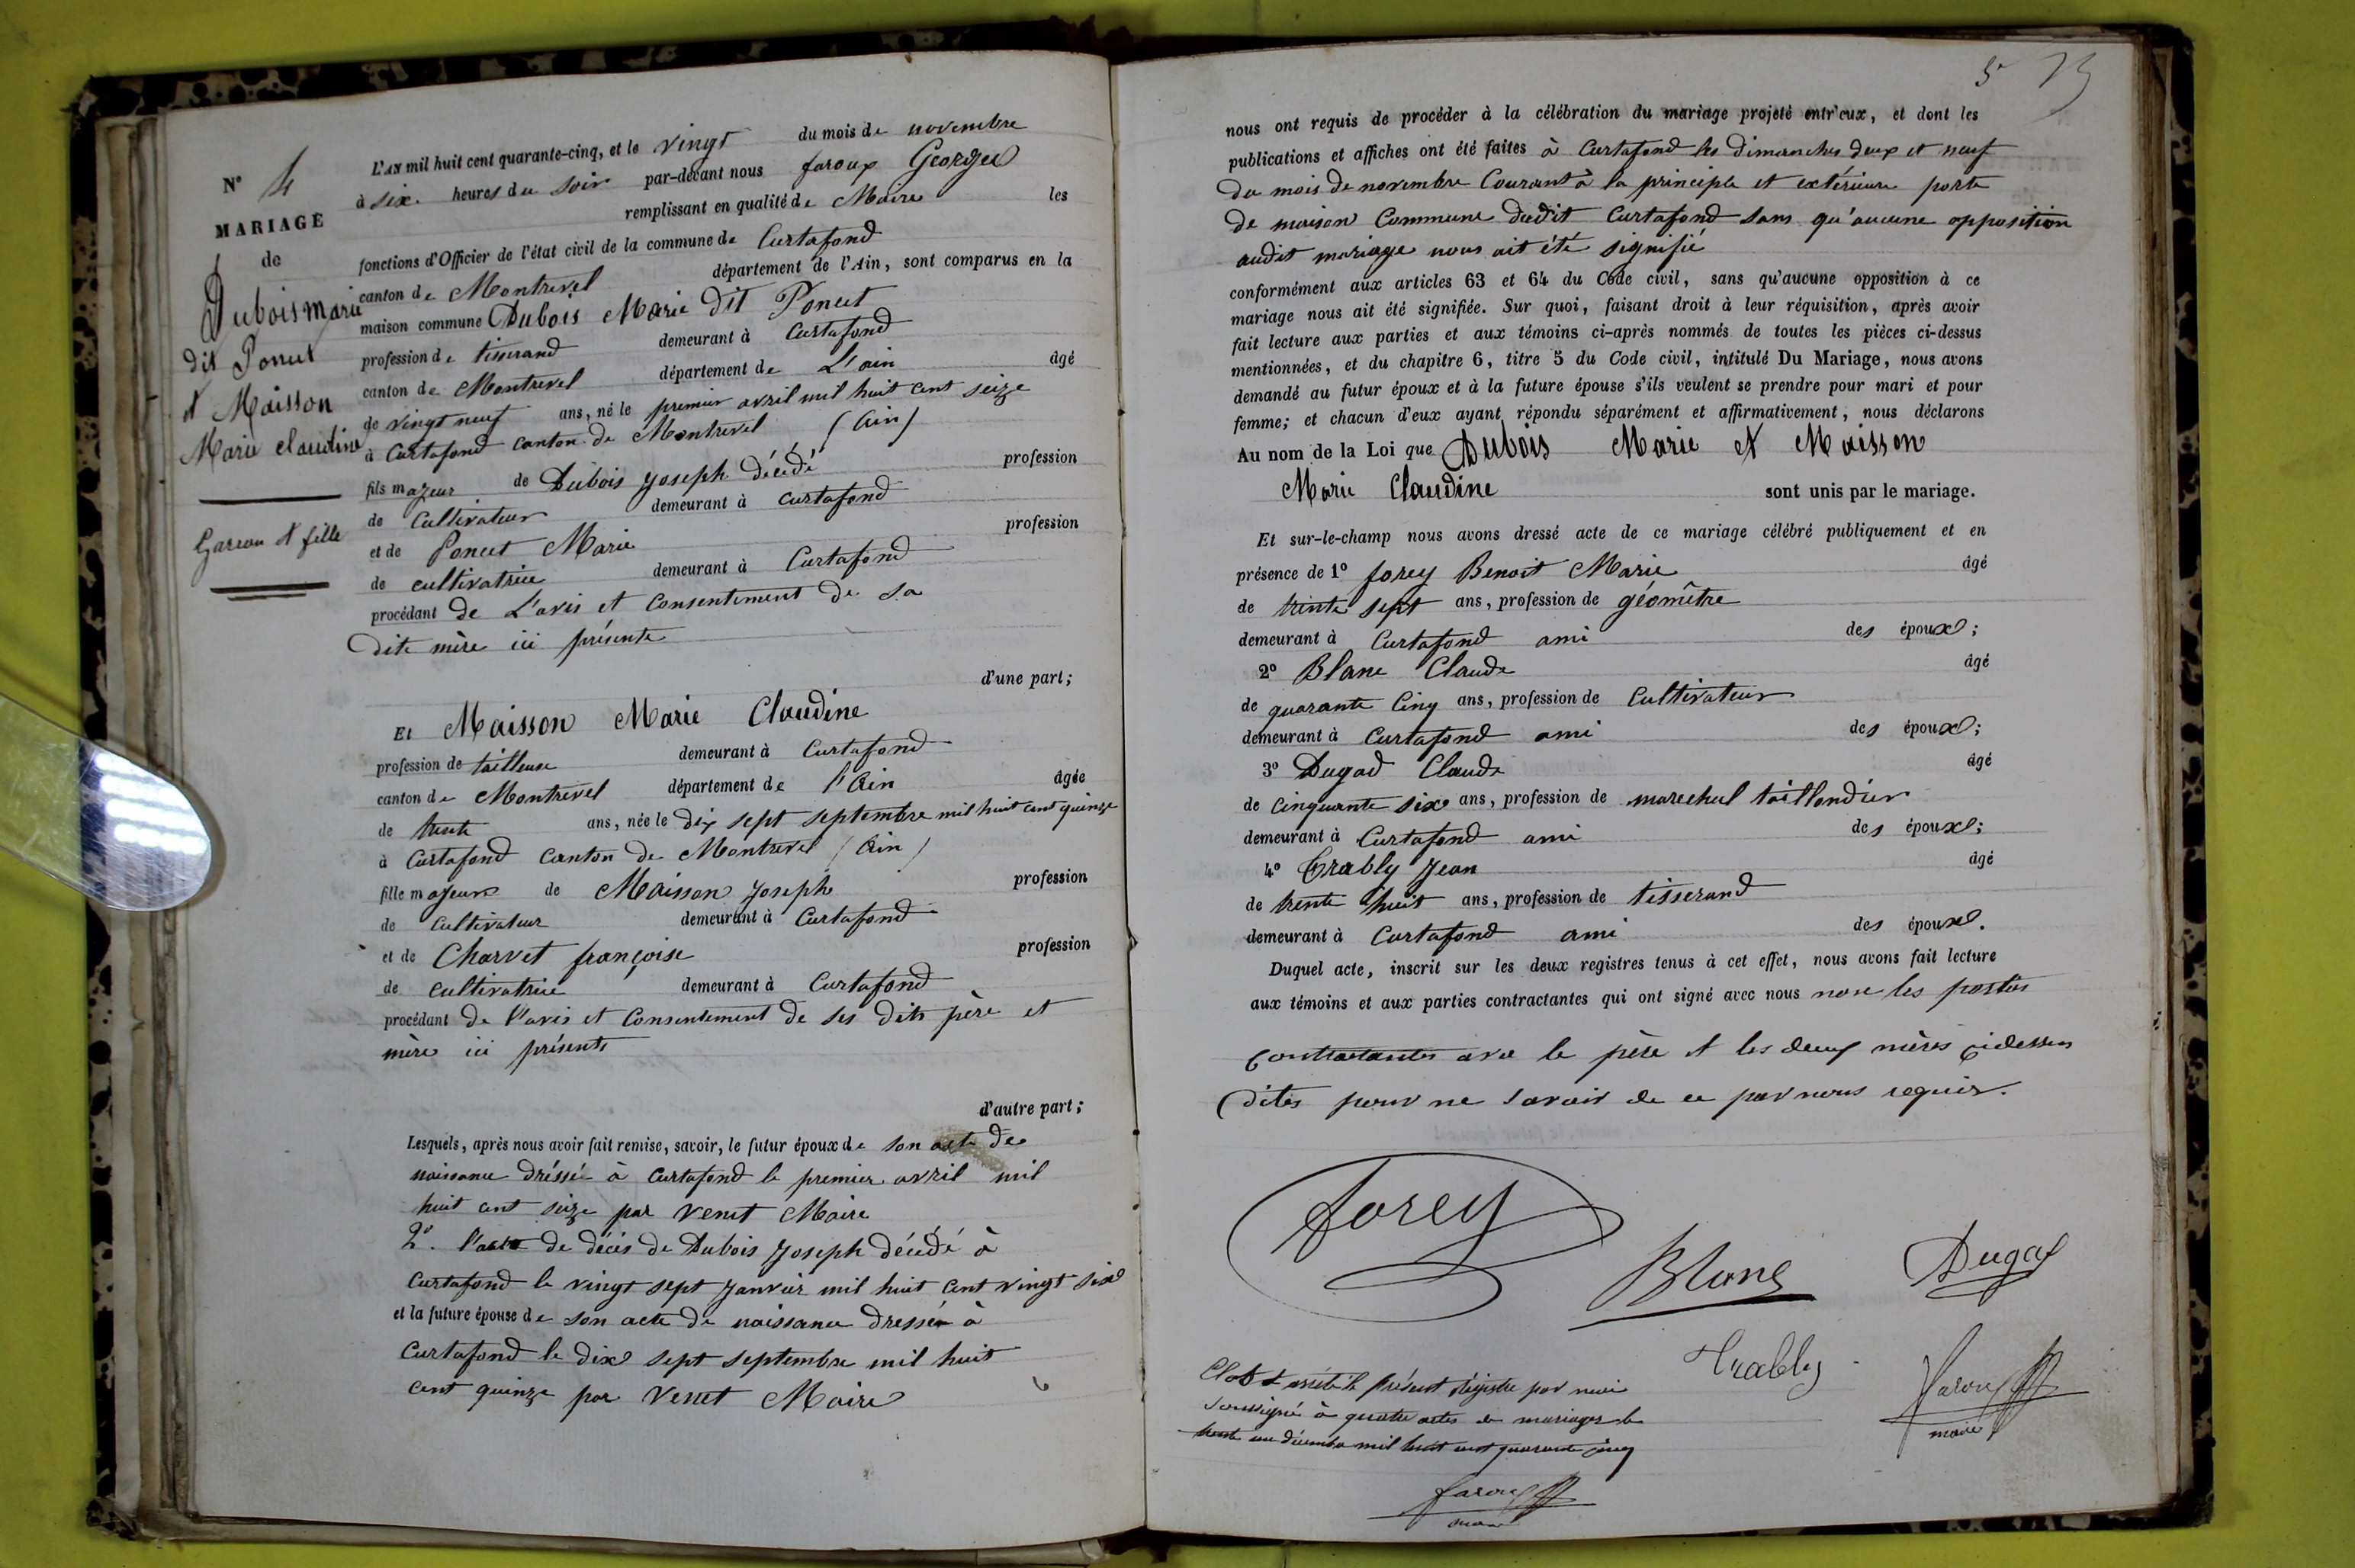 N° 4
MARIAGE
de
Dubois marie
dit Poncet
et Maisson
Marie claudine
Garcon et fille
L'AN mil huit cent quarante-cinq, et le vingt du mois de novembre
à six heures du soir par-devant nous faroux Georges
remplissant en qualité de Maire les
fonctions d'Officier de l'état civil de la commune de Curtafond
canton de Montrevel département de l'Ain, sont comparus en la
maison commune Dubois Marie dit Poncet
profession de tisserand demeurant à Curtafond
canton de Montrevel département de L'ain âgé
de vingt neuf ans, né le premier avril mil huit cent seize
à Curtafond canton de Montrevel (Ain)
fils majeur de Dubois joseph décédé profession
de Cultivateur demeurant à Curtafond
et de Poncet Marie profession
de cultivatrice demeurant à Curtafond
procédant de L'avis et Consentement de sa
Dite mère ici présente
d'une part;
Et Maisson Marie Claudine
profession de tailleuse demeurant à Curtafond
canton de Montrevel département de l'Ain âgée
de trente ans, née le dix sept septembre mil huit cent quinze
à Curtafond Canton de Montrevel (Ain)
fille majeure de Maisson Joseph profession
de Cultivateur demeurant à Curtafond
et de Charvet françoise profession
de cultivatrice demeurant à Curtafond
procédant de l'avis et Consentement de ses dits père et
mère ici présents
d'autre part;
Lesquels, après nous avoir fait remise, savoir, le futur époux de son acte de
naissance dréssée à Curtafond le premier avril mil
huit cent seize par Venet Maire
2°. l'acte de décès de Dubois Joseph décédé à
Curtafond le vingt sept Janvier mil huit Cent vingt six
et la future épouse de son acte de naissance dressée à
Curtafond le dix sept septembre mil huit
cent quinze par Venet Maire
5 13
nous ont requis de procéder à la célébration du mariage projeté entr'eux, et dont les
publications et affiches ont été faites à Curtafond les dimanches deux et neuf
du mois de novembre Courant à la principle et extérieure porte
de maison Commune dudit Curtafond sans qu'aucune opposition
audit mariage nous ait été signifié
conformément aux articles 63 et 64 du Code civil, sans qu'aucune opposition à ce
mariage nous ait été signifiée. Sur quoi, faisant droit à leur réquisition, après avoir
fait lecture aux parties et aux témoins ci-après nommés de toutes les pièces ci-dessus
mentionnées, et du chapitre 6, titre 5 du Code civil, intitulé Du Mariage, nous avons
demandé au futur époux et à la future épouse s'ils veulent se prendre pour mari et pour
femme; et chacun d'eux ayant répondu séparément et affirmativement, nous déclarons
Au nom de la Loi que Dubois Marie et Maisson
Marie Claudine sont unis par le mariage.
Et sur-le-champ nous avons dressé acte de ce mariage célébré publiquement et en
présence de 1° forey Benoit Marie âgé
de trente sept ans, profession de géomêtre
demeurant à Curtafond ami des époux;
2° Blanc Claude âgé
de quarante Cinq ans, profession de Cultivateur
demeurant à Curtafond ami des époux;
3° Dugad Claude âgé
de Cinquante six ans, profession de marechal taillandier
demeurant à Curtafond ami des époux;
4° Trably Jean âgé
de trente huit ans, profession de tisserand
demeurant à Curtafond ami des époux.
Duquel acte, inscrit sur les deux registres tenus à cet effet, nous avons fait lecture
aux témoins et aux parties contractantes qui ont signé avec nous non les parties
Contractantes avec le père et les deux mères cidessus
Dites pour ne savoir de ce par nous requis.
forey
Blanc
Dugad
Trably
faroux
maire
Clos et arrêté le présent régistre par moi
soussigné à quatre actes de mariages le
trente un décembre mil huit cent quarante cinq
faroux
maire